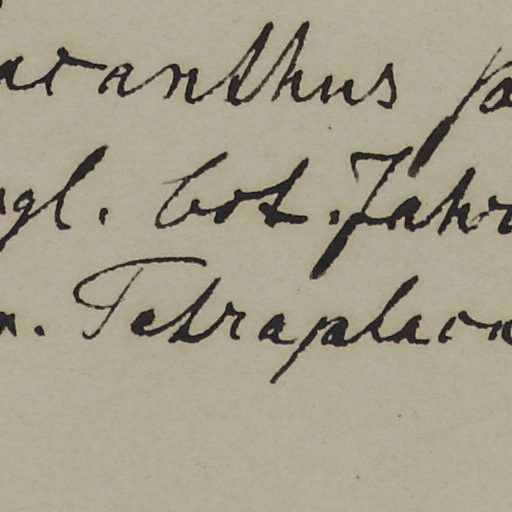 acanthus pa
ngl. bot. Jahr
n. Tetraplacu